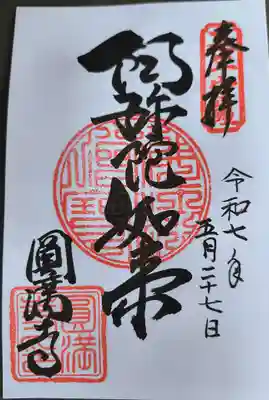 奉拝
令和七年
五月二十七日
阿弥陀如来
圓満寺